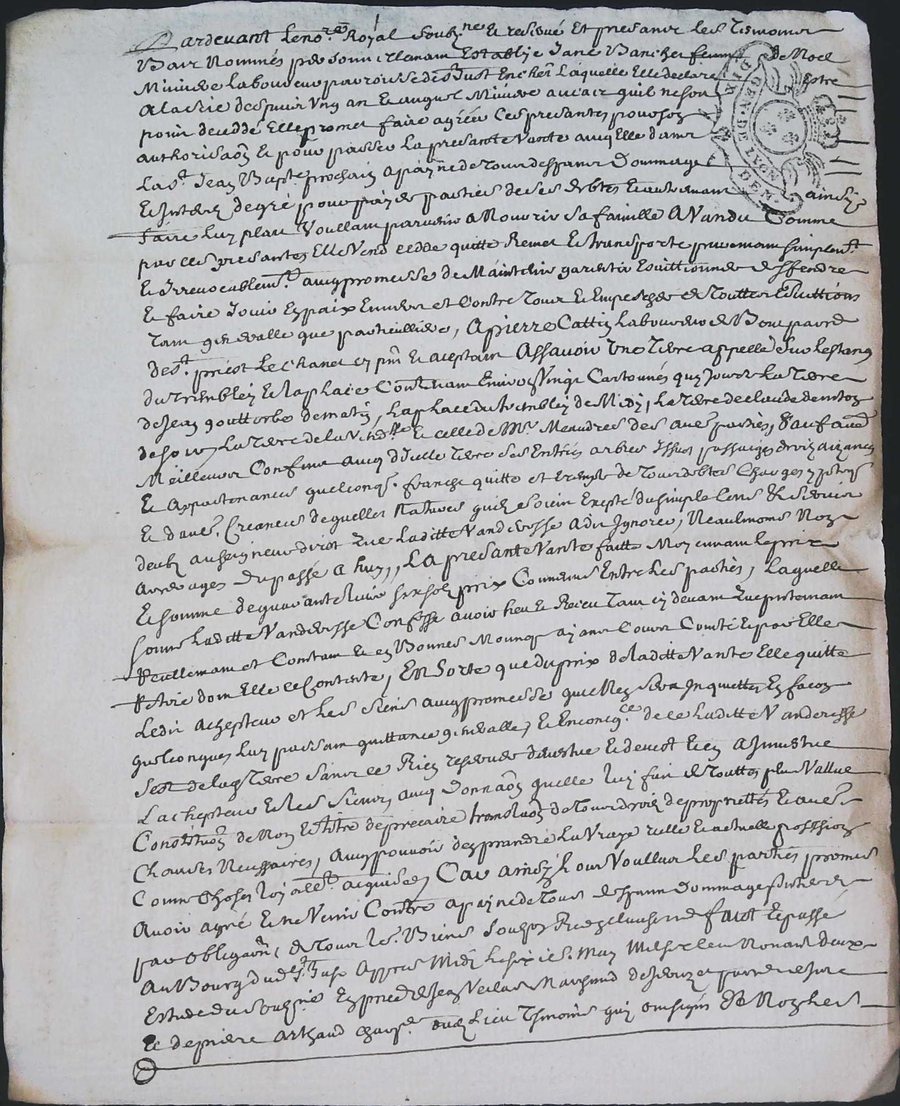 Pardevant le no.re Royal soub.ne et reservé Et presantz les tesmoins
Bas Nommés personnellemant Establie Jane Bancher femme de Noel
Miniere Laboureur parroisse de St Just Encher Laquelle Elle declare Estre
a la depuis ung an Et auquel Miniere au cas quil ne soit
point decedé Elle promet faire agréer Ces presantes pour son
authorisaôn Et pour passer La presante Vante auquelle dans
La St Jean Bapte prochain a payne de tous despans dommages
Et Interest de gré pour payer parties de ses debtes Et autremant ainsi
faire luy plait Voullant parvenir a Nourrir sa famille A Vandu Comme
par ces presantes Elle Vend cedde quitte Remet Et transporte puremant simplemt
Et Irrevocablemt avec promesses de Maintenir garentir Evictionner deffendre
Et faire Jouir En paix Envers et Contre tous Et Empesches de touttes Evictions
tant generalle que particulliere, A pierre Cattin Laboureur de
de St priest Le Chanet cy pnt Et aceptant Assavoir Une terre appellé Sur Lestang
du tremblay Et La place Contenant Environ Vingt Cartonnés quy Jouxte La terre
de Jean de matin, La place du tremblay de Midy, La terre de claude
de soir, La terre de la Ville Et celle de Mr Meaudres des aues parties, Sauf aues
Meilleurs Confins avec dicelle terre ses Entrés arbres Issues passaiges droits aizances
Et Appartenances quelconqs. franche quitte et Exempte de tous debtes Charges ypotèqs
Et daues. Creances de quelles Natures quils soient Excepté du simple Cens Et Servis
deub au seigneur direct que Laditte Vanderesse a dit Ignorer, Neaulmoins Non
arrerages du passé a huy,, La presante Vante faitte Moyennant le prix
Et somme de quarante huit prix Convenu Entre Les parties, Laquelle
somme Laditte Vanderesse Confesse avoir heu Et Receu tant cy devant que presentemant
Reellemant et Comtant Et En Bonnes Monnoyes ayant Cours Comté Et par Elle
Retiré dont Elle ce Contente, En Sorte que du prix de laditte Vante Elle quitte
Ledit achepteur et Les siens avec promesses quil Nen sera Inquietté En facon
quelconques Luy passant quittance generalle, Et Enconsce. de ce Laditte Vanderesse
Sest de la dte terre sans ce Rien reserver devestue Et devest Et En a Investue
Lachepteur Et Les Siens avec donnaôn quelle luy fait de touttes plus Vallue
Constitutôn de Nom Et titre de precaire translaôn de tous droits de proprietté Et aues.
Clauses Necessaires, avec pouvoir den prendre La Vraye reelle Et actuelle possession
Comme Choses loyallemt acquises Car ainsi Lont Voullu Les parties promis
Avoir agréé Et ne Venir Contre a payne de tous despans dommages Interests
par obligaôn de tous Les Biens Soubz Renonc Clauses fait Et passé
Au Bourg dud. St Just Appres Midy Le six Mil sept cens Nonante deux
Estude du soubsné En pnce de Jean
Et de pierre Arthaud charp. dud. Lieu tesmoins quy ont signés Et Non Les
DIX DEN
GEN. DE LYON
DEM.